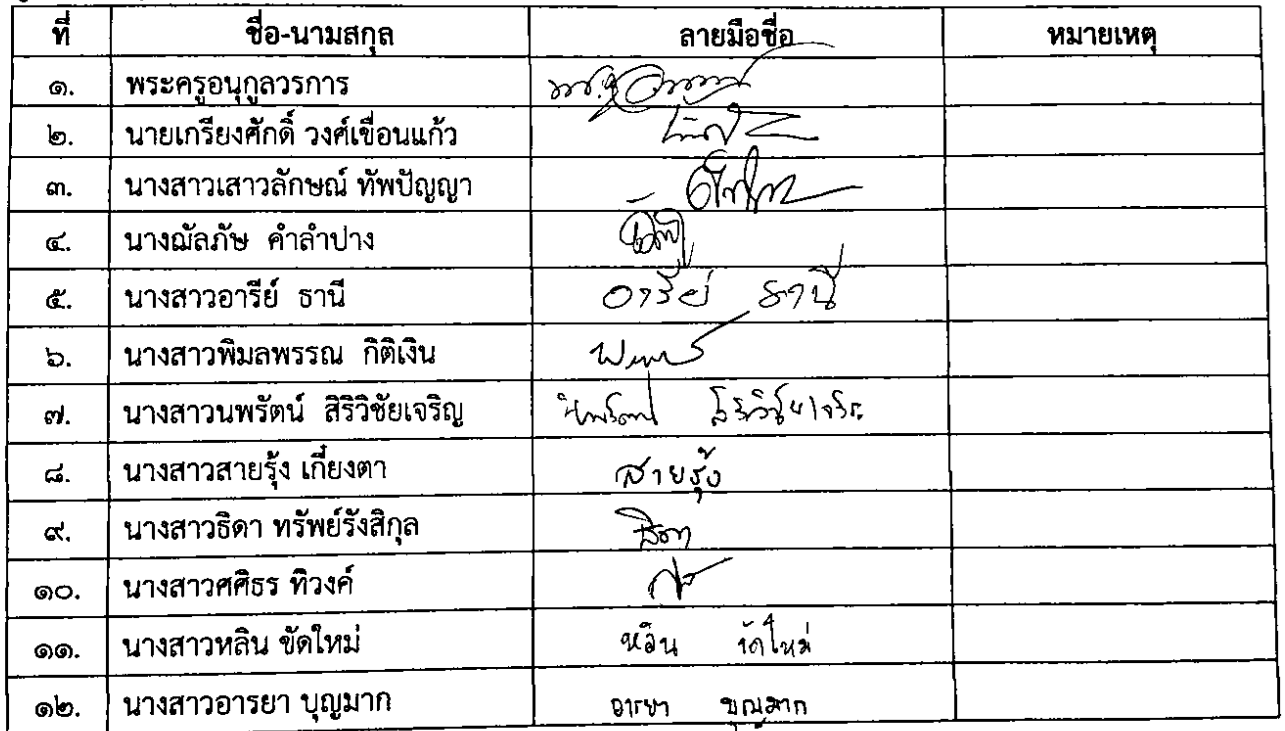 ที่ ชื่อ-นามสกุล ลายมือชื่อ หมายเหตุ
๑. พระครูอนุกูลวรการ
๒. นายเกรียงศักดิ์ วงศ์เขื่อนแก้ว
๓. นางสาวเสาวลักษณ์ ทัพปัญญา
๔. นางฌัลภัษ คำลำปาง
๕. นางสาวอารีย์ ธานี อารีย์ ธานี
๖. นางสาวพิมลพรรณ กิติเงิน
๗. นางสาวนพรัตน์ สิริวิชัยเจริญ นพรัตน์ สิริวิชัยเจริญ
๘. นางสาวสายรุ้ง เกี๋ยงตา สายรุ้ง
๙. นางสาวธิดา ทรัพย์รังสิกุล ธิดา
๑๐. นางสาวศศิธร ทิวงค์
๑๑. นางสาวหลิน ขัดใหม่ หลิน ขัดใหม่
๑๒. นางสาวอารยา บุญมาก อารยา บุญมาก